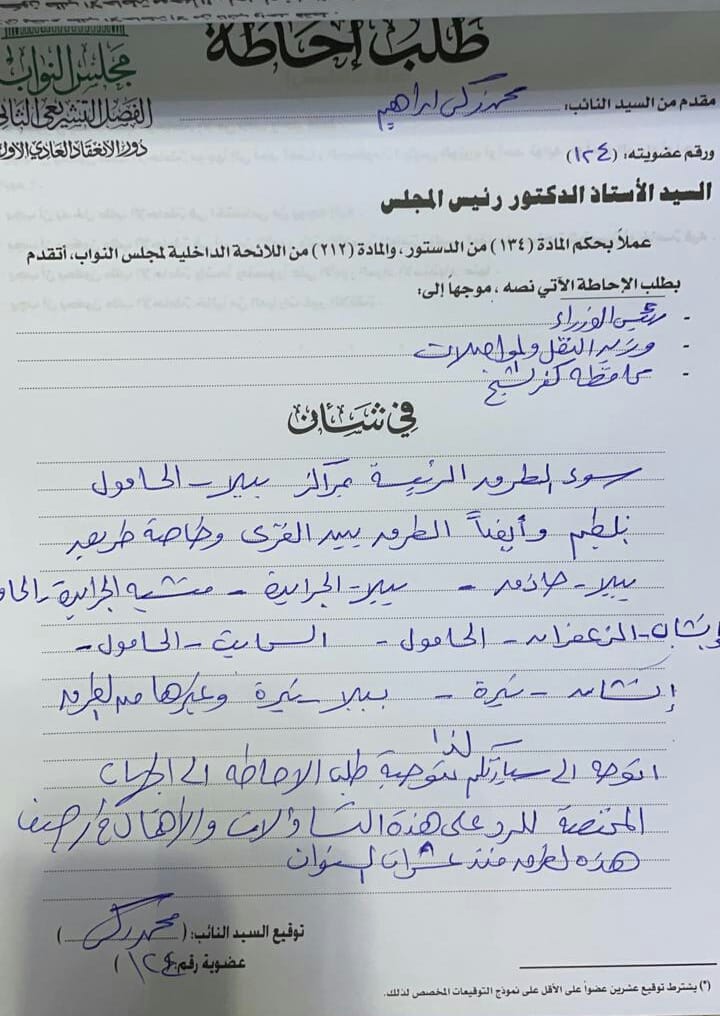 طلب إحاطة
مجلس النواب
الفصل التشريعي الثاني
دور الانعقاد العادي الأول
مقدم من السيد النائب: محمد زكى ابراهيم
ورقم عضويته: (١٢٤)
السيد الأستاذ الدكتور رئيس المجلس
عملاً بحكم المادة (١٣٤) من الدستور، والمادة (٢١٢) من اللائحة الداخلية لمجلس النواب، أتقدم
بطلب الإحاطة الآتي نصه، موجها إلى:
- رئيس الوزراء
- وزير النقل والمواصلات
- محافظة كفر الشيخ
في شأن
سوء الطرق الرئيسة بمراكز بيلا - الحامول
بلطيم وأيضاً الطرق بين القرى وخاصة طريق
بيلا - حاذق - بيلا - الجرايدة - منشية الجرايدة - الحا
إبشان - الزعفران - الحامول - - الحامول -
إبشان - نيرة - بيلا - نيرة وغيرها من الطرق
لذا
اتوجه الى سيادتكم بتوجية طلب الاحاطه الى الجهات
المختصة للرد على هذة التساؤلات والأهمال فى رصف
هذه الطرق منذ عشرات السنوات
توقيع السيد النائب: (محمد زكى)
عضوية رقم: (١٢٤)
(*) يشترط توقيع عشرين عضواً على الأقل على نموذج التوقيعات المخصص لذلك.